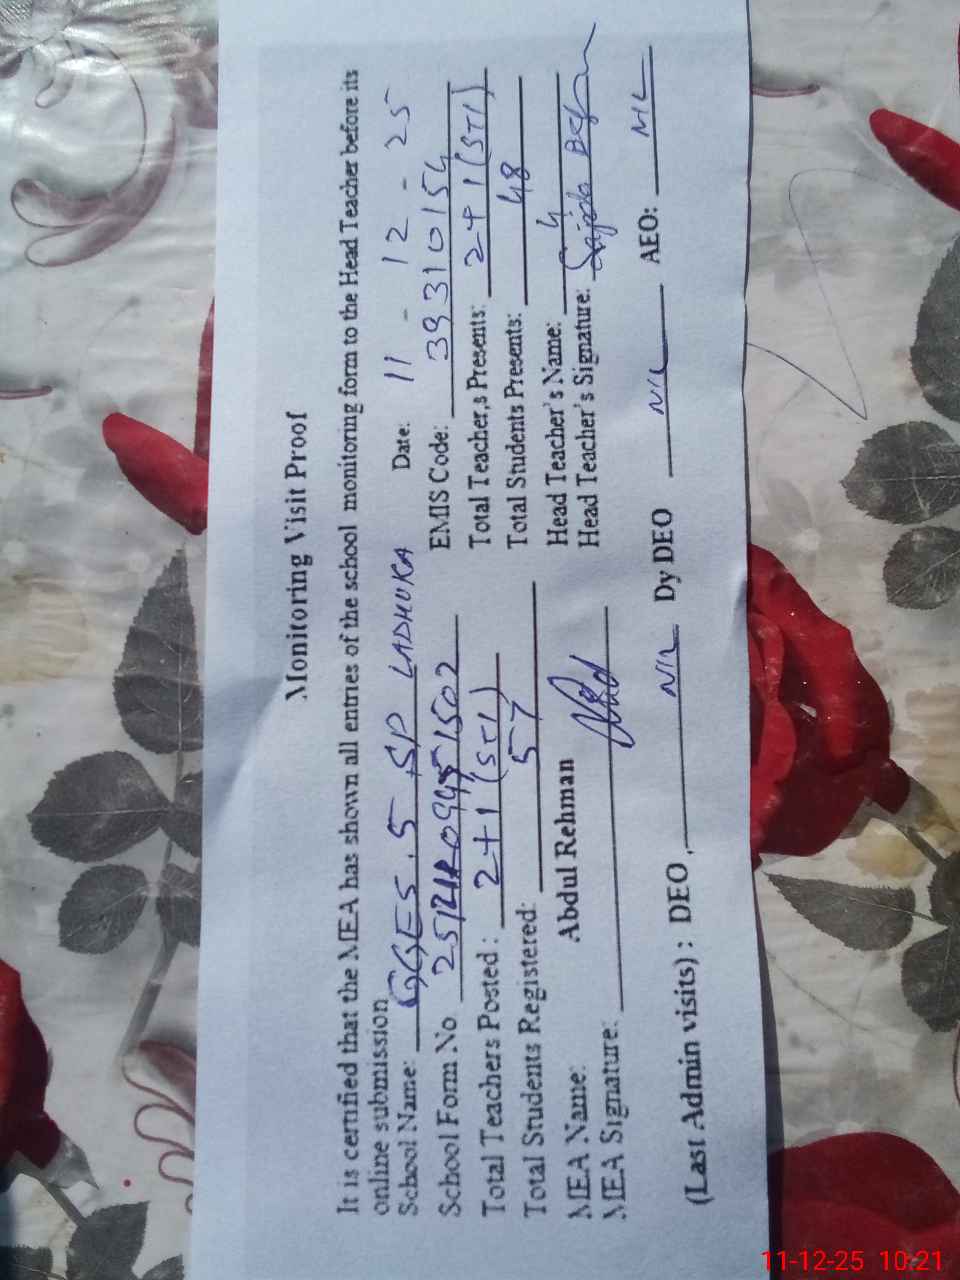 Monitoring Visit Proof
It is certified that the MEA has shown all entries of the school monitoring form to the Head Teacher before its
online submission
School Name: GGES. 5. SP LADHUKA Date: 11 - 12 - 25
School Form No EMIS Code: 39310154
Total Teachers Posted : 2+1(STI) Total Teacher,s Presents: 2+1(STI)
Total Students Registered: 57 Total Students Presents: 48
MEA Name: Abdul Rehman Head Teacher's Name:
MEA Signature: Head Teacher's Signature: Sajida
(Last Admin visits) : DEO . NIL Dy DEO NIL AEO: NIL
11-12-25 10:21